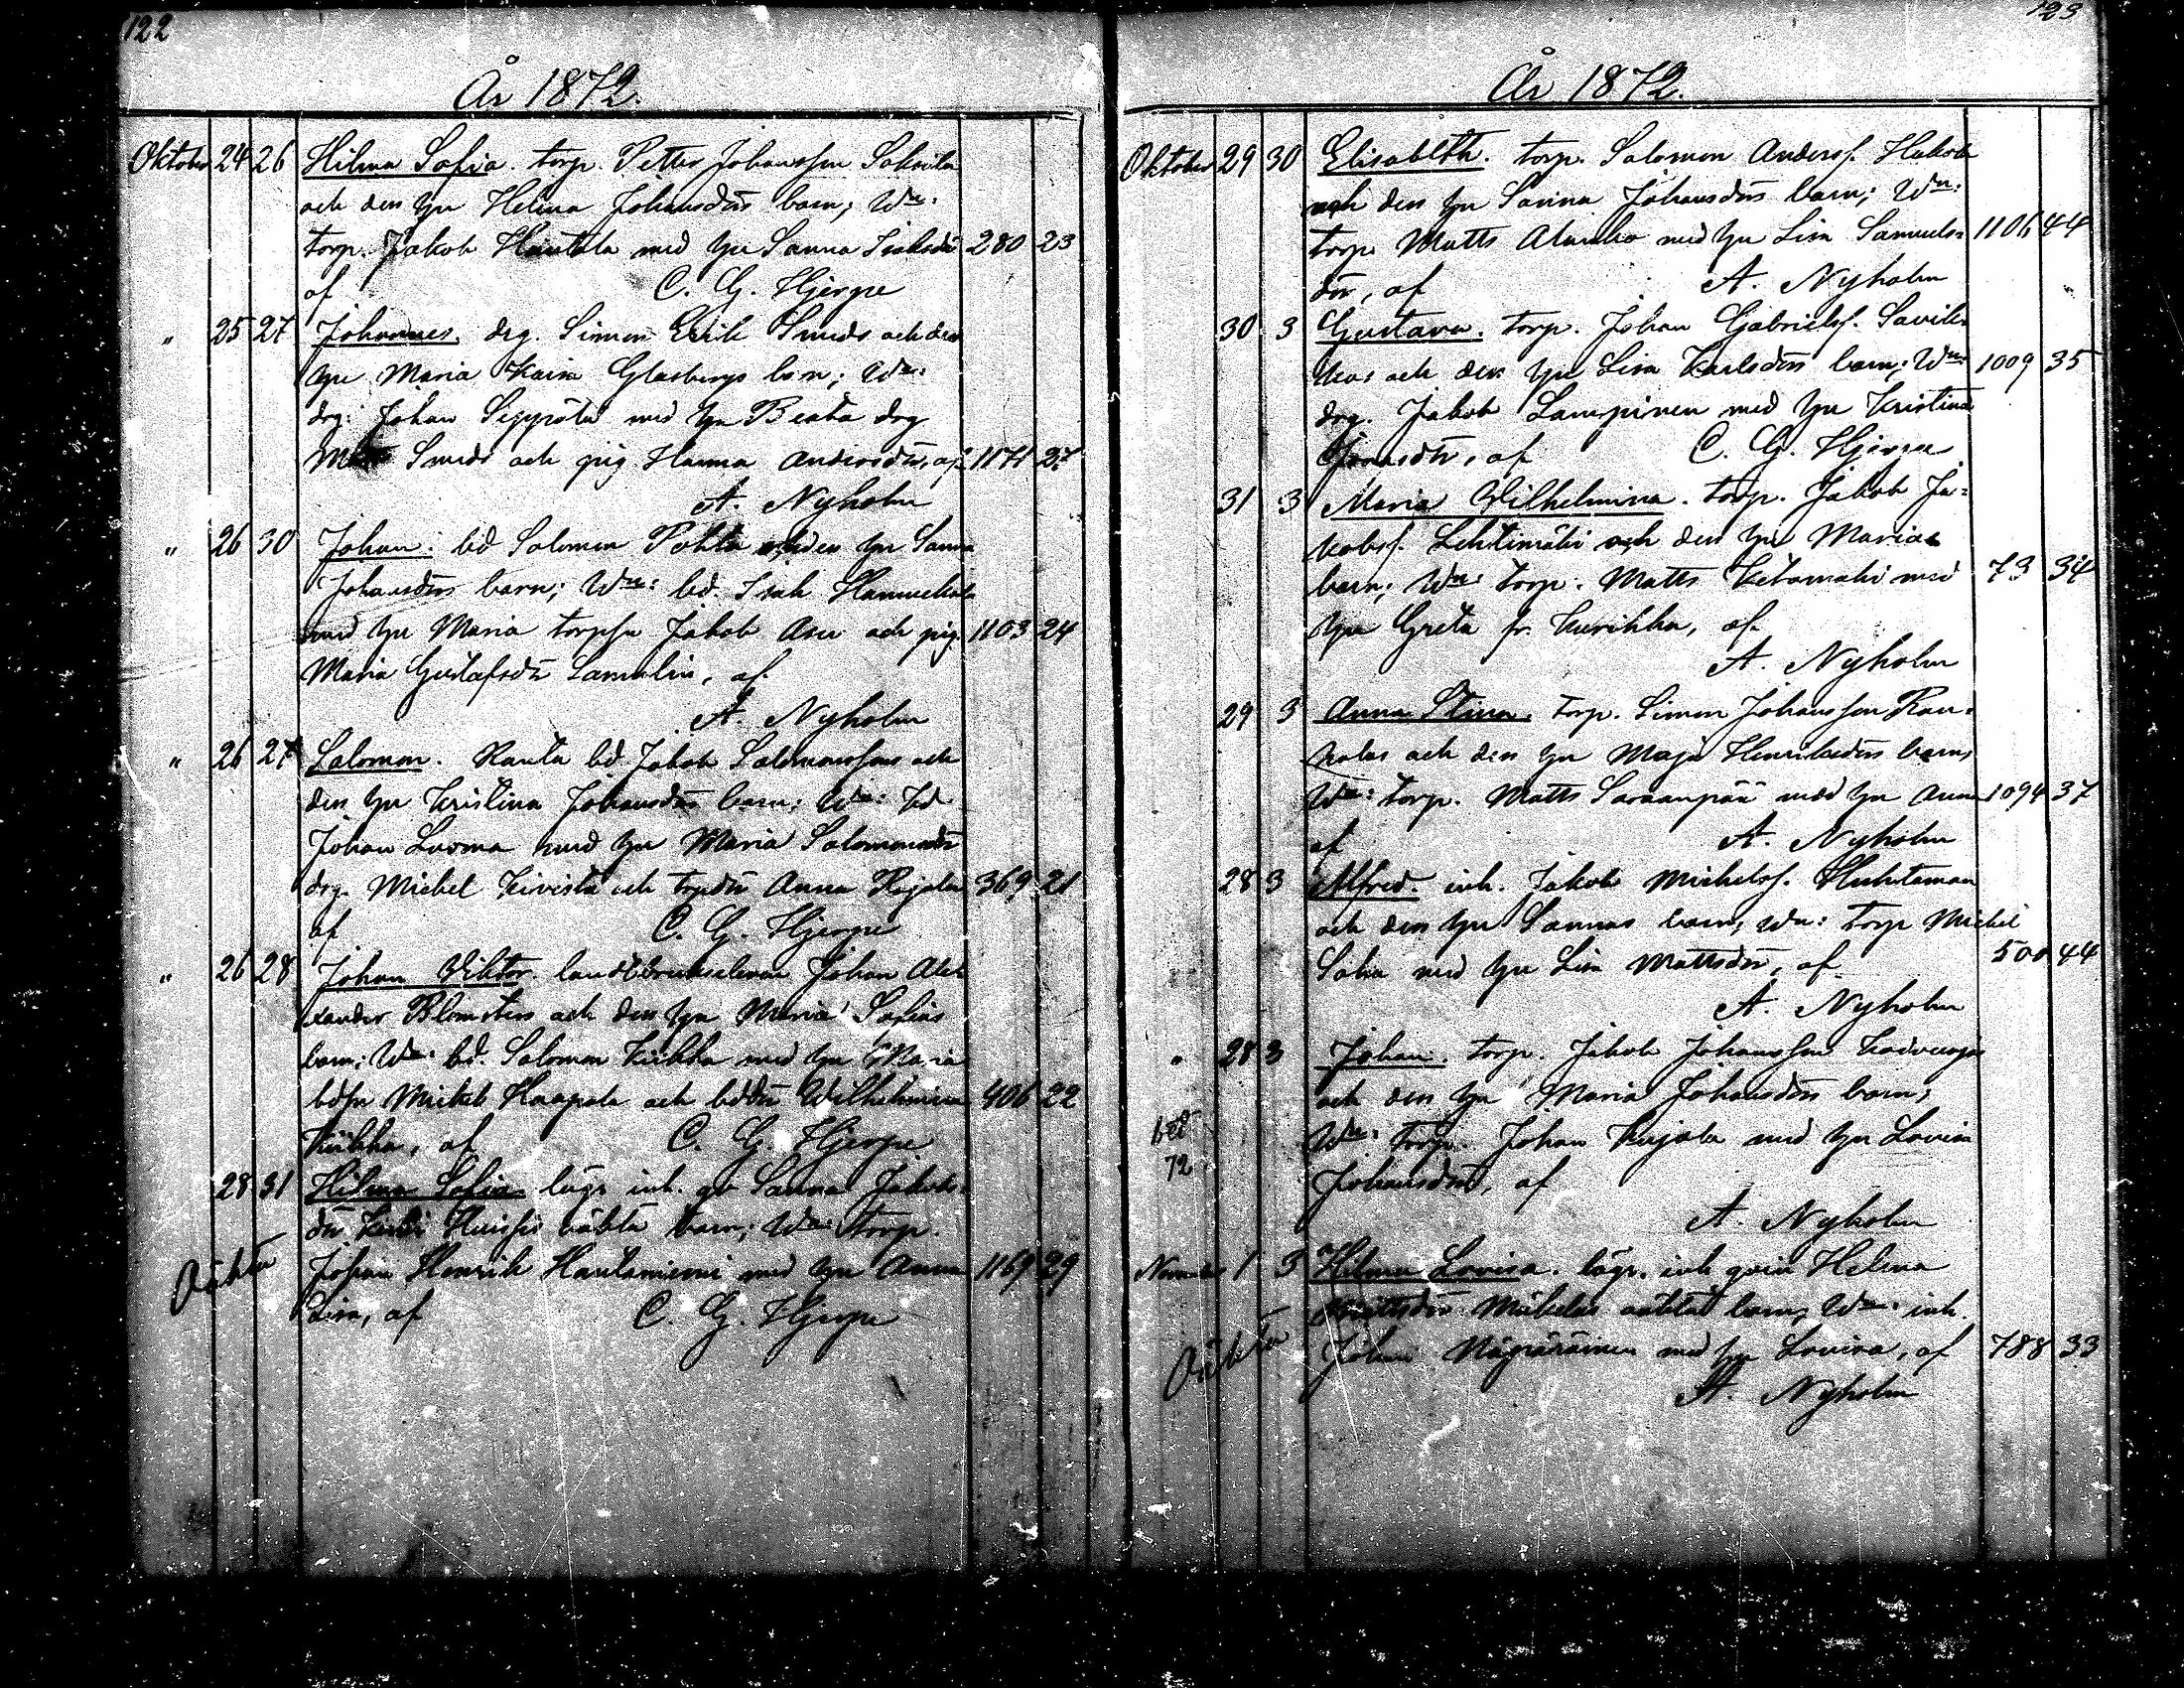 122
År 1872.
Oktober 24 26 Hilma Sofia. torp. Petter Johansson
och dess hu Helena Johansdrs barn; Wn:
torp. Jakob Hautala med hu Sanna Isaksdr 280 23
af C. G. Hjerpe
" 25 27 Johannes. drg. Simon Erik Smeds och dess
hu Maria Kaisa Glasbergs barn; Wn:
drg. Johan Seppälä med hu Beata drg
Smeds och pig. Hanna Andersdr, af 1171 27
A. Nyholm
" 26 30 Johan. bd Salomon och dess hu Sanna
Johansdrs barn; Wn: bd. Isak
med hu Maria torpsn Jakob och pig. 1103 24
Maria Gustafsdr, af
A. Nyholm
" 26 27 Salomon. Ranta bd Jakob Salomonssons och
dess hu Kristina Johansdrs barn; Wn: bd
Johan Luoma med hu Maria Salomonsdr
drg. Michel Kivistö och torpdr Anna Rajala 369 21
af C. G. Hjerpe
" 26 28 Johan Viktor. landtbrukseleven Johan Alek
xander Blomsters och dess hu Maria Sofias
barn; Wn: bd. Salomon Kiikka med hu Maria
bdsn Michel Haapala och bddr Wilhelmina 406 22
Kiikka, af C. G. Hjerpe
28 31 Hilma Sofia. lägr inh. qv Sanna Jakobs-
dr oäkta barn; Wn: torp.
Oäkta Johan Henrik Hautaniemi med hu Anna 1169 29
Lisa, af C. G. Hjerpe
123
År 1872.
Oktober 29 30 Elisabeth. torp. Salomon Anderss.
och dess hu Sanna Johansdrs barn; Wn:
torp Matts Alanko med hu Lisa Samuels= 1106 44
dr, af A. Nyholm
30 3 Gustava. torp. Johan Gabrielss. Savilak
kas och dess hu Lisa Karlsdrs barn; Wn: 1009 35
drg. Jakob Lampinen med hu Kristina
Jonasdr, af C. G. Hjerpe
31 3 Maria Wilhelmina. torp. Jakob Ja=
kobss. Lehtimäki och dess hu Marias
barn; Wn: torp. Matts Ketomäki med 73 34
hu Greta fr. Kurikka, af
A. Nyholm
29 3 Anna Stina. torp. Simon Johansson Ran=
kolas och dess hu Maja Henriksdrs barn;
Wn: torp. Matts Saraanpää med hu Anna 1094 37
af A. Nyholm
28 3 Alfred. inh. Jakob Michelss. Huhtaman
och dess hu Sannas barn; Wn: torp Michel
Salia med hu Lisa Mattsdr, af 500 44
A. Nyholm
" 28 3 Johan. torp. Jakob Johansson
och dess hu Maria Johansdrs barn;
Wn: torp. Johan Kujala med hu Lovisa
72 Johansdr, af
A. Nyholm
November 1 3 Hilma Lovisa. lägr. inh qvin Helena
Mattsdr Mäkeläs oäkta barn; Wn: inh.
Oäkta Johan med hu Lovisa, af 788 33
A. Nyholm